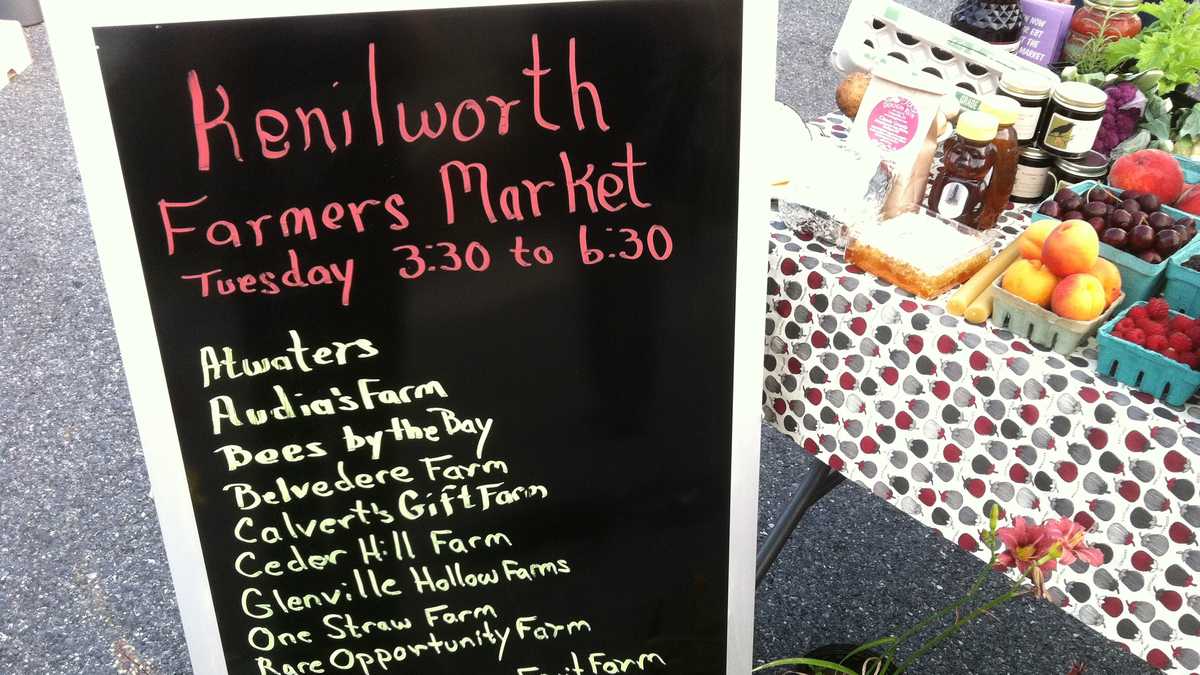 Kenilworth
Farmers Market
Tuesday 3:30 to 6:30
Atwaters
Audia's Farm
Bees by the Bay
Belvedere Farm
Calvert's Gift Farm
Cedar Hill Farm
Glenville Hollow Farms
One Straw Farm
Rare Opportunity Farm
Fruit Farm
NOW
EAT
THE
MARKET
GRADE